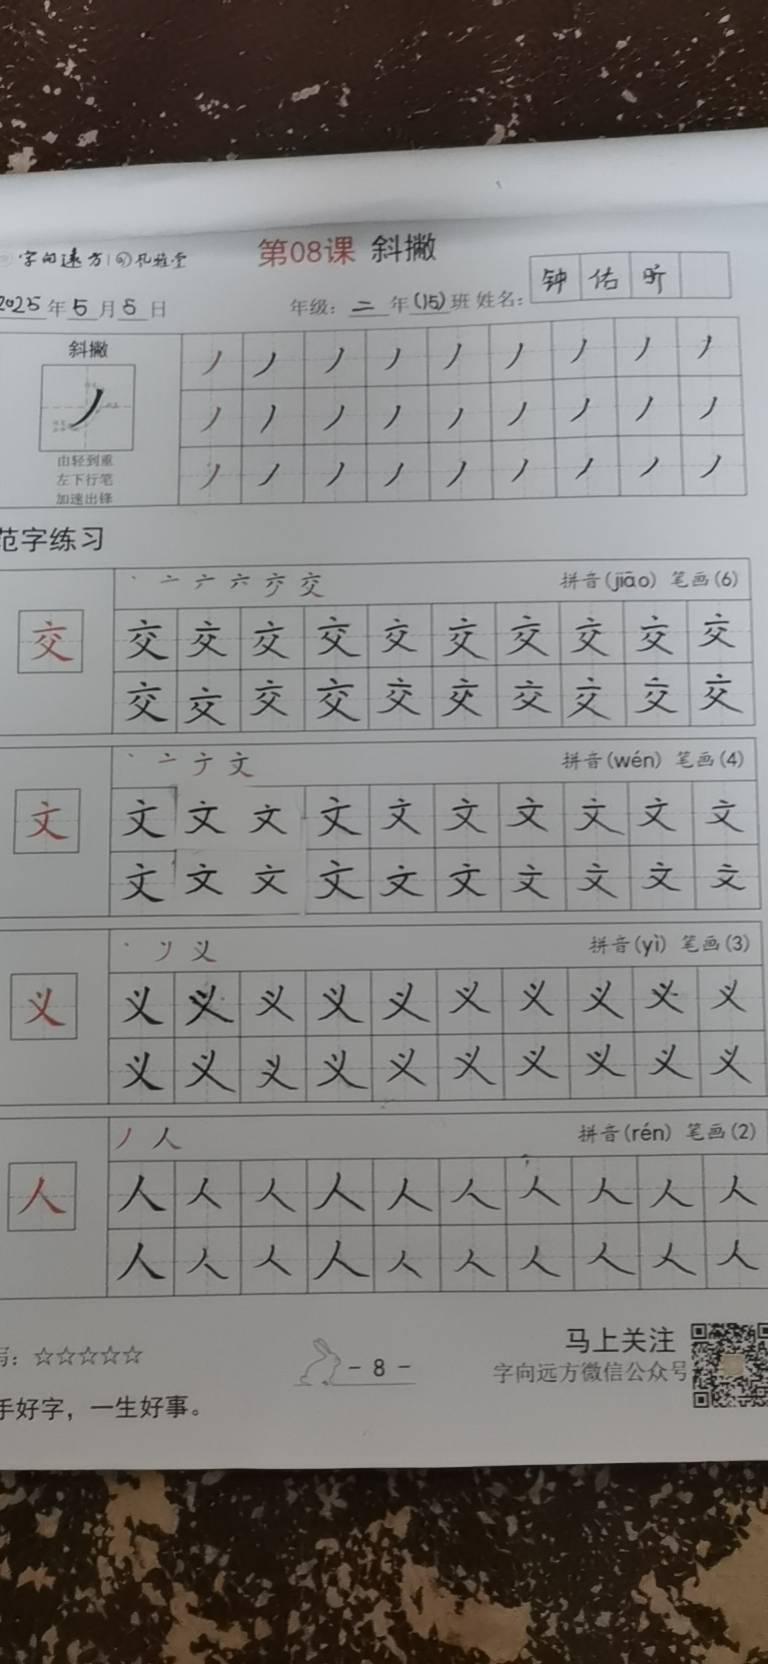 字向远方
第08课 斜撇
2025年5月5日 年级：二年(15)班 姓名：钟佑昕
斜撇
由轻到重
左下行笔
加速出锋
丿丿丿丿丿丿丿丿丿
丿丿丿丿丿丿丿丿丿
丿丿丿丿丿丿丿丿丿
范字练习
丶 亠 亣 六 交 拼音(jiāo) 笔画(6)
交 交交交交交交交交交交
交交交交交交交交交交
丶 亠 文 拼音(wén) 笔画(4)
文 文文文文文文文文文文
文文文文文文文文文文
丶 义 拼音(yì) 笔画(3)
义 义义义义义义义义义义
义义义义义义义义义义
丿 人 拼音(rén) 笔画(2)
人 人人人人人人人人人人
人人人人人人人人人人
：☆☆☆☆☆
- 8 -
马上关注
字向远方微信公众号
手好字，一生好事。